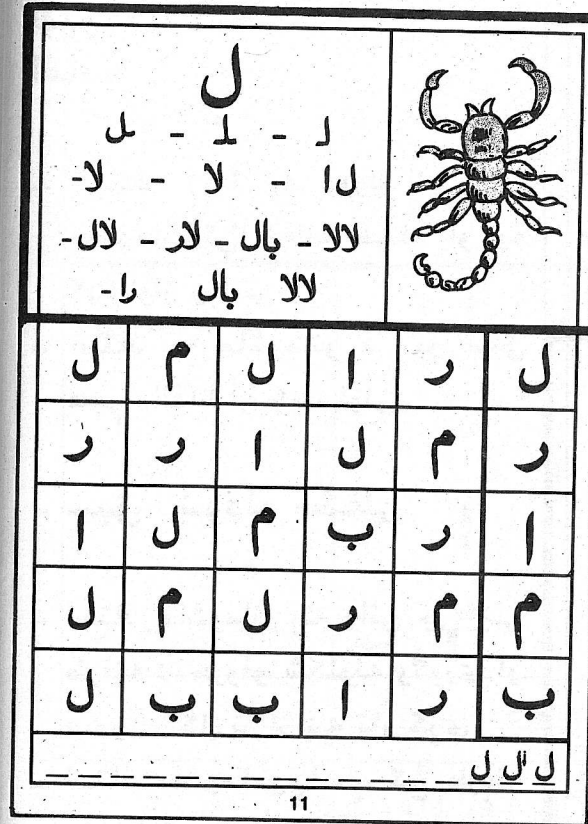 ل
لـ - ـلـ - ـل
ل ا - لا - لا-
لالا - بال - لار - لال-
لالا بال را-
ل ر ا ل م ل
ر م ل ا ر ر
ا ر ب م ل ا
م م ر ل م ل
ب ر ا ب ب ل
ل ل ل _ _ _ _ _ _ _ _ _ _ _ _ _ _ _ _ _
11